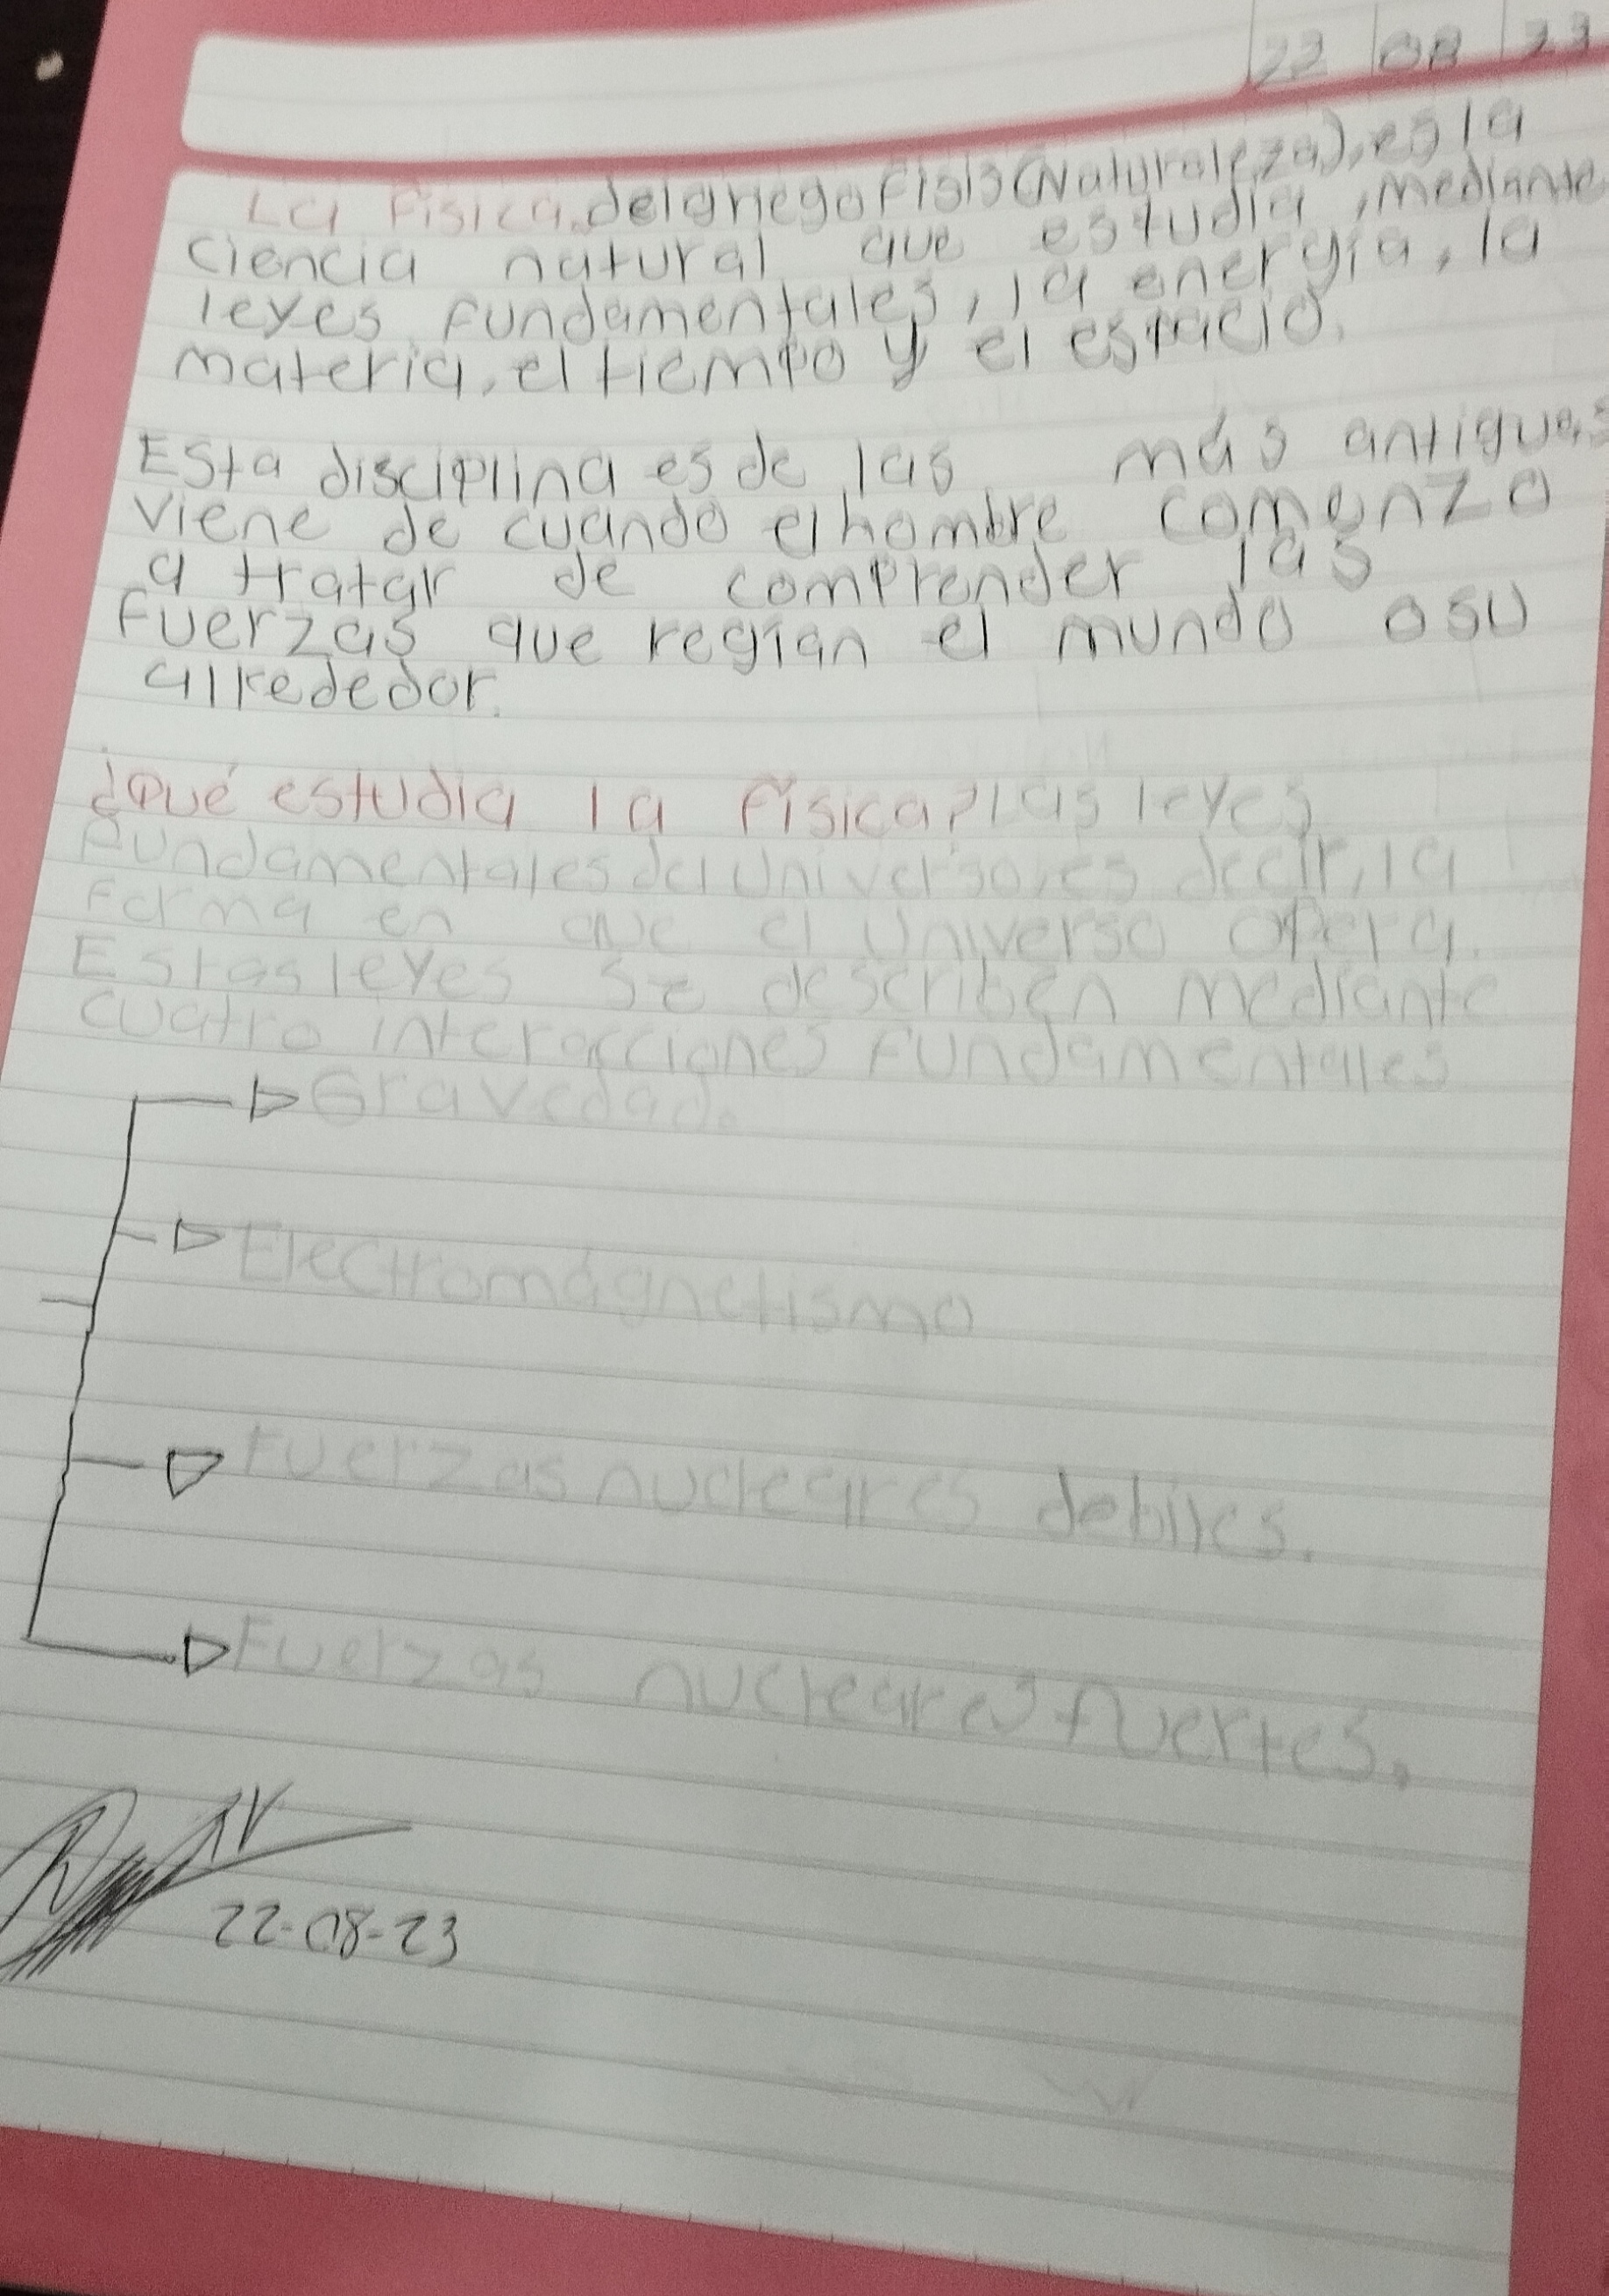 22 08 23
La Física, del griego Fisis (Naturaleza), es la
ciencia natural que estudia, mediante
leyes fundamentales, la energía, la
materia, el tiempo y el espacio.
Esta disciplina es de las más antiguas
viene de cuando el hombre comenzo
a tratar de comprender las
fuerzas que regían el mundo o su
alrededor.
¿Qué estudia la Física? Las leyes
Fundamentales del Universo, es decir, la
forma en que el Universo opera.
Estas leyes se describen mediante
cuatro interacciones Fundamentales
Gravedad.
Electromágnetismo
Fuerzas nucleares debiles.
Fuerzas nucleares fuertes.
22-08-23